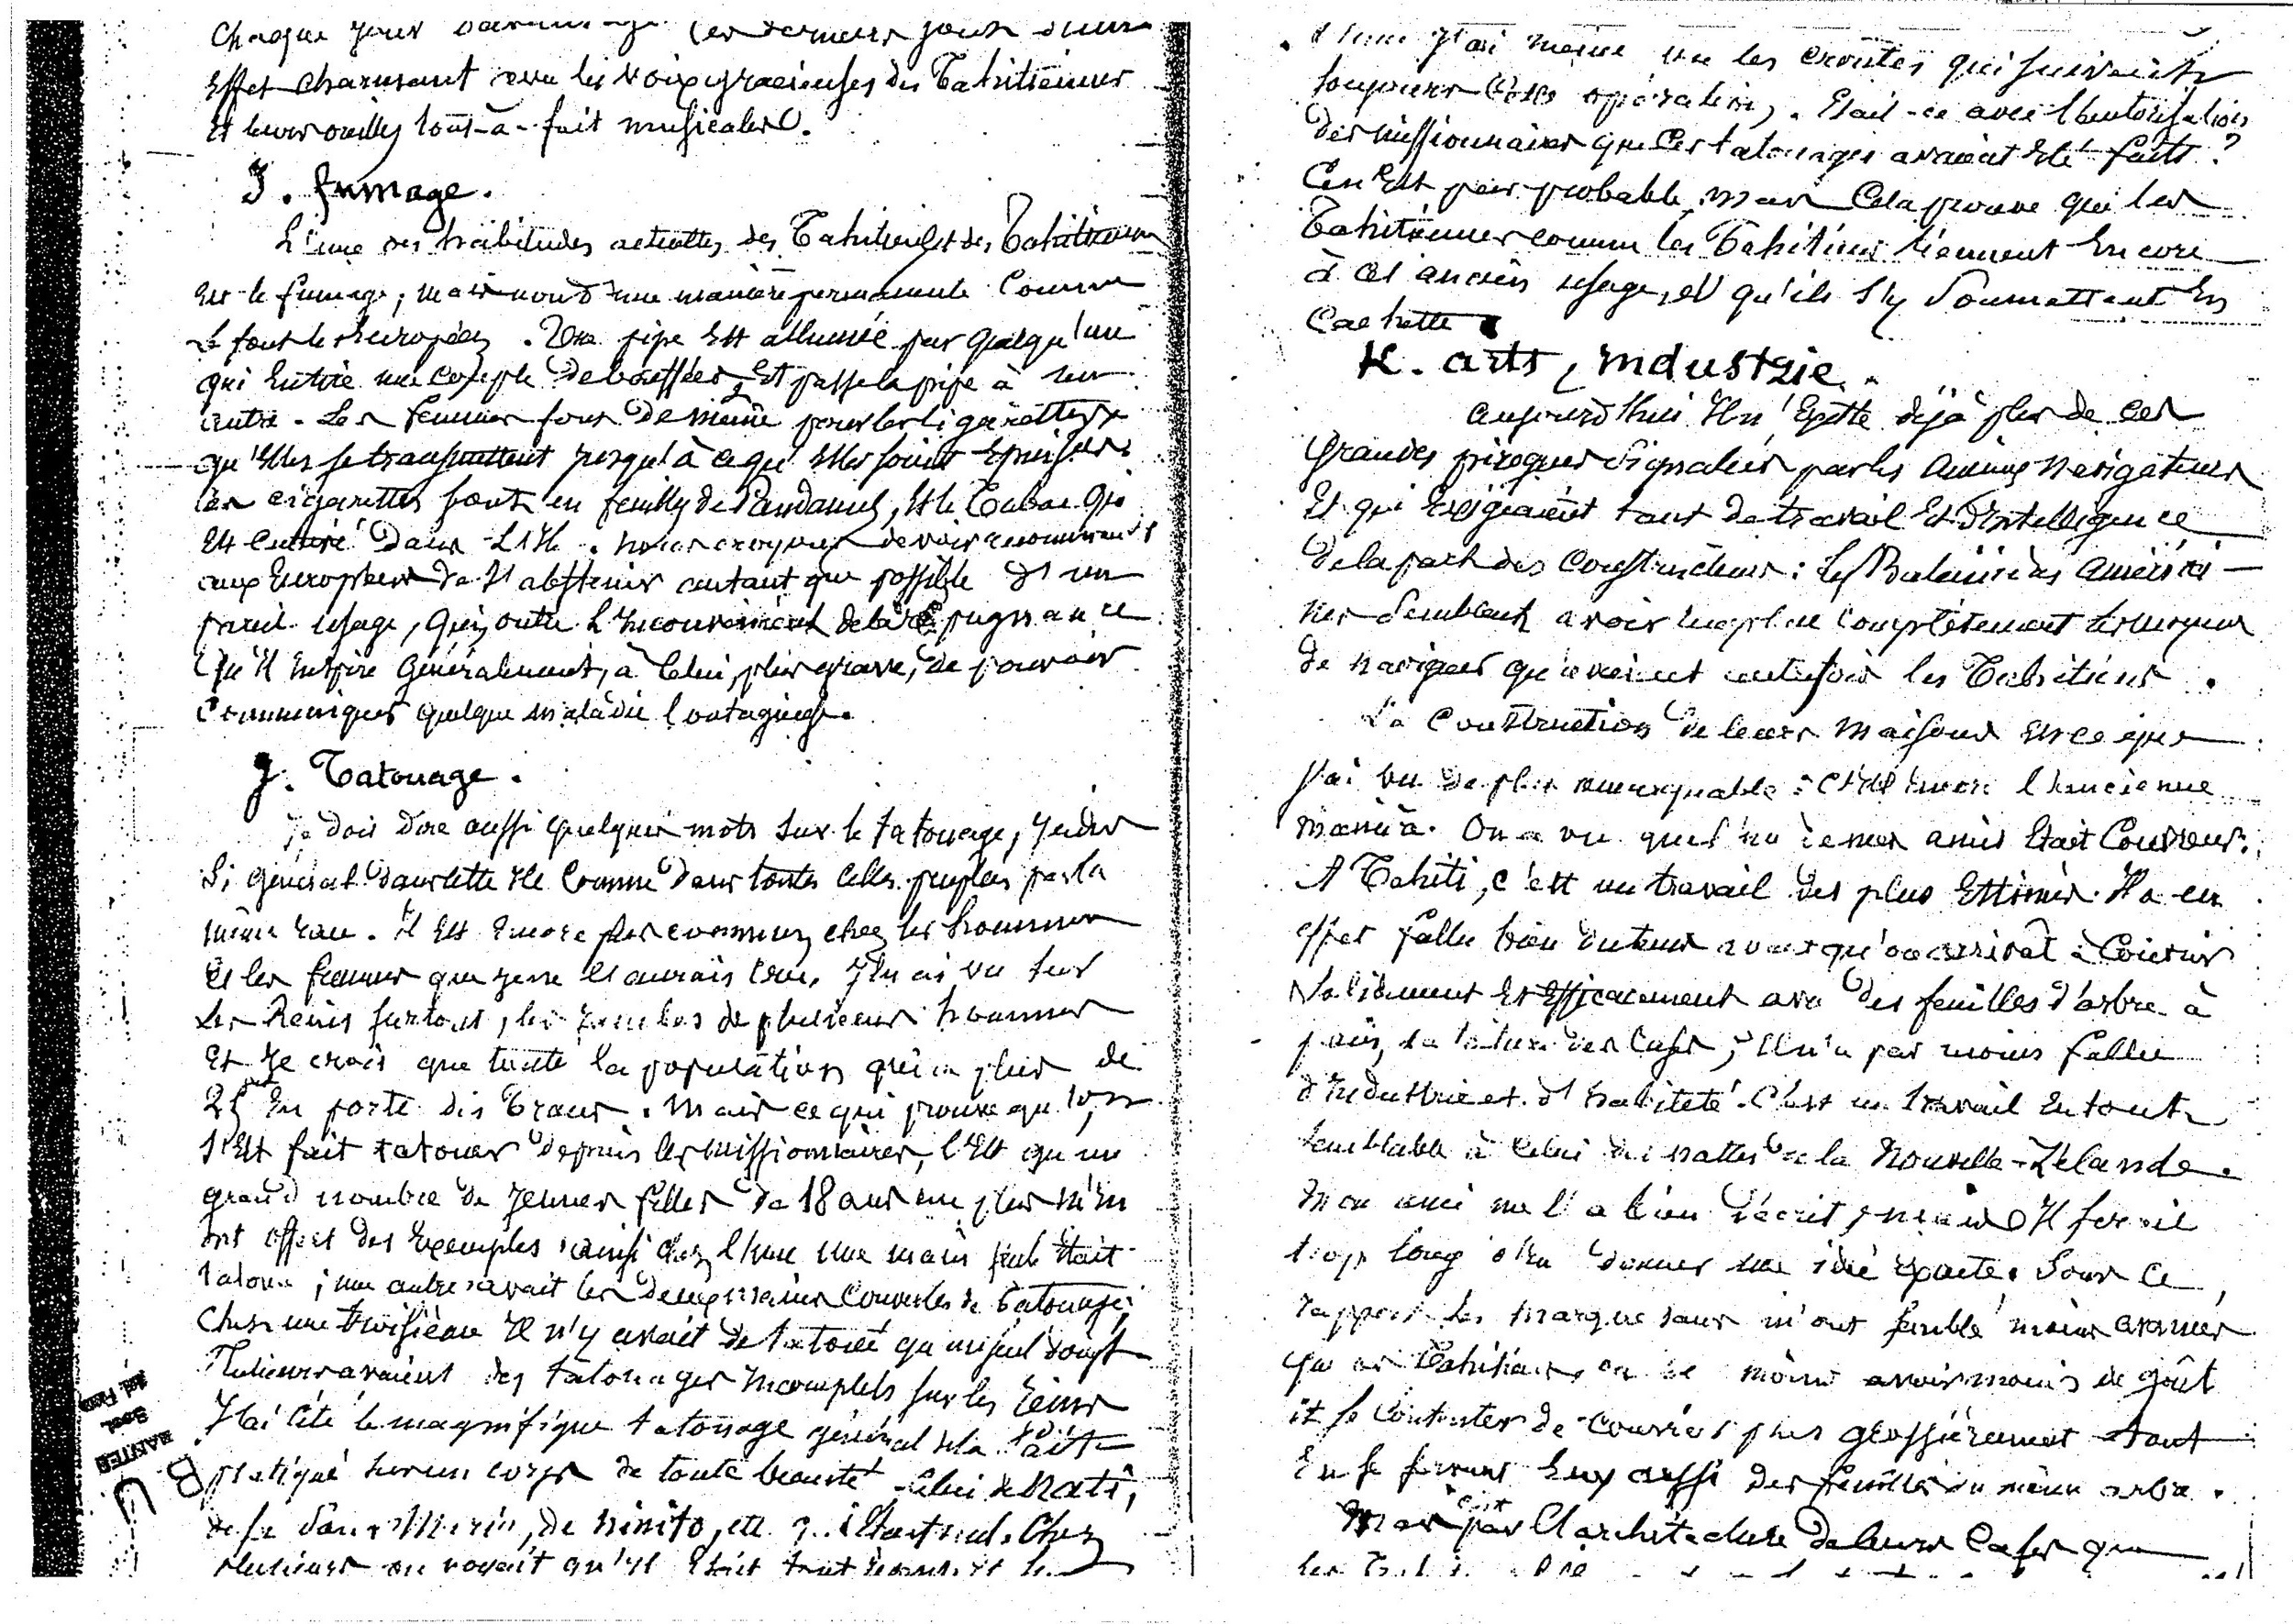 chaque jour davantage. Ces derniers jouent d'un
effet charmant avec les voix gracieuses des Tahitiennes
et leurs oreilles tout-à-fait musicales.
I. fumage.
L'une des habitudes actuelles des Tahitiens et des Tahitiennes
est le fumage, mais non d'une manière permanente comme
le font les Européens. Une pipe est allumée par quelqu'un
qui en tire une couple de bouffées, et passe la pipe à un
autre. Les femmes font de même pour les cigarettes
qu'elles se transmettent jusqu'à ce qu'elles soient épuisées
les cigarettes sont en feuilles de Pandanus, et le Tabac qui
est cultivé dans l'île. nous croyons devoir recommander
aux Européens de s'abstenir autant que possible d'un
pareil usage, qui, outre l'inconvénient de la répugnance
qu'il inspire généralement, a celui, plus grave, de pouvoir
communiquer quelque maladie contagieuse.
J. Tatouage.
Je dois dire aussi quelques mots sur le tatouage, jadis
si général dans cette île comme dans toutes celles peuplées par la
même race. il est encore plus commun chez les hommes
et les femmes que je ne l'aurais cru. J'en ai vu sur
les Reins surtout, les jambes de plusieurs hommes
et je crois que toute la population qui a plus de
25 ans en porte des traces. Mais ce qui prouve qu'on
s'est fait tatouer depuis les missionnaires, c'est qu'un
grand nombre de jeunes filles de 18 ans au plus m'en
ont offert des exemples : ainsi chez l'une une main seule était
tatouée ; une autre avait les deux mains couvertes de tatouages ;
chez une troisième il n'y avait de tatoué qu'un seul doigt
Plusieurs avaient des tatouages incomplets sur les reins
J'ai cité le magnifique tatouage général de la
pratiqué sur un corps de toute beauté, celui de
de sa sœur, de, etc. Chez
plusieurs on voyait qu'il était tout récent et le
BANTED
B U
J'ai même vu les croûtes qui suivent
toujours cette opération. Etait-ce avec l'autorisation
des missionnaires que ces tatouages avaient été faits ?
Ce n'est pas probable, mais cela prouve que les
Tahitiennes comme les Tahitiens tiennent encore
à cet ancien usage, et qu'ils s'y soumettent en
cachette.
K. arts, industrie.
aujourd'hui il n'existe déjà plus de ces
grandes pirogues signalées par les anciens navigateurs
et qui exigeaient tant de travail et d'intelligence
de la part des constructeurs : les Baleinières Américai-
nes semblent avoir remplacé complètement les moyens
de naviguer qu'avaient autrefois les Tahitiens.
La construction de leurs maisons est ce que
j'ai vu de plus remarquable : c'est encore l'ancienne
manière. On a vu que l'un de mes amis était Couvreur.
A Tahiti, c'est un travail des plus estimés. Il a en
effet fallu bien du temps avant qu'on arrivât à couvrir
solidement et efficacement avec des feuilles d'arbre à
pain, la toiture des cases ; il n'a pas moins fallu
d'industrie et d'habileté. C'est un travail en tout
semblable à celui des nattes de la Nouvelle-Zélande.
Mon ami me l'a bien décrit, mais il serait
trop long d'en donner une idée exacte. Sous ce
rapport les marquesans m'ont semblé moins avancés
que les Tahitiens, ou du moins avoir moins de goût
et se contenter de couvrir plus grossièrement, tout
en se servant eux aussi des feuilles du même arbre.
Mais c'est par l'architecture de leurs cases que
les